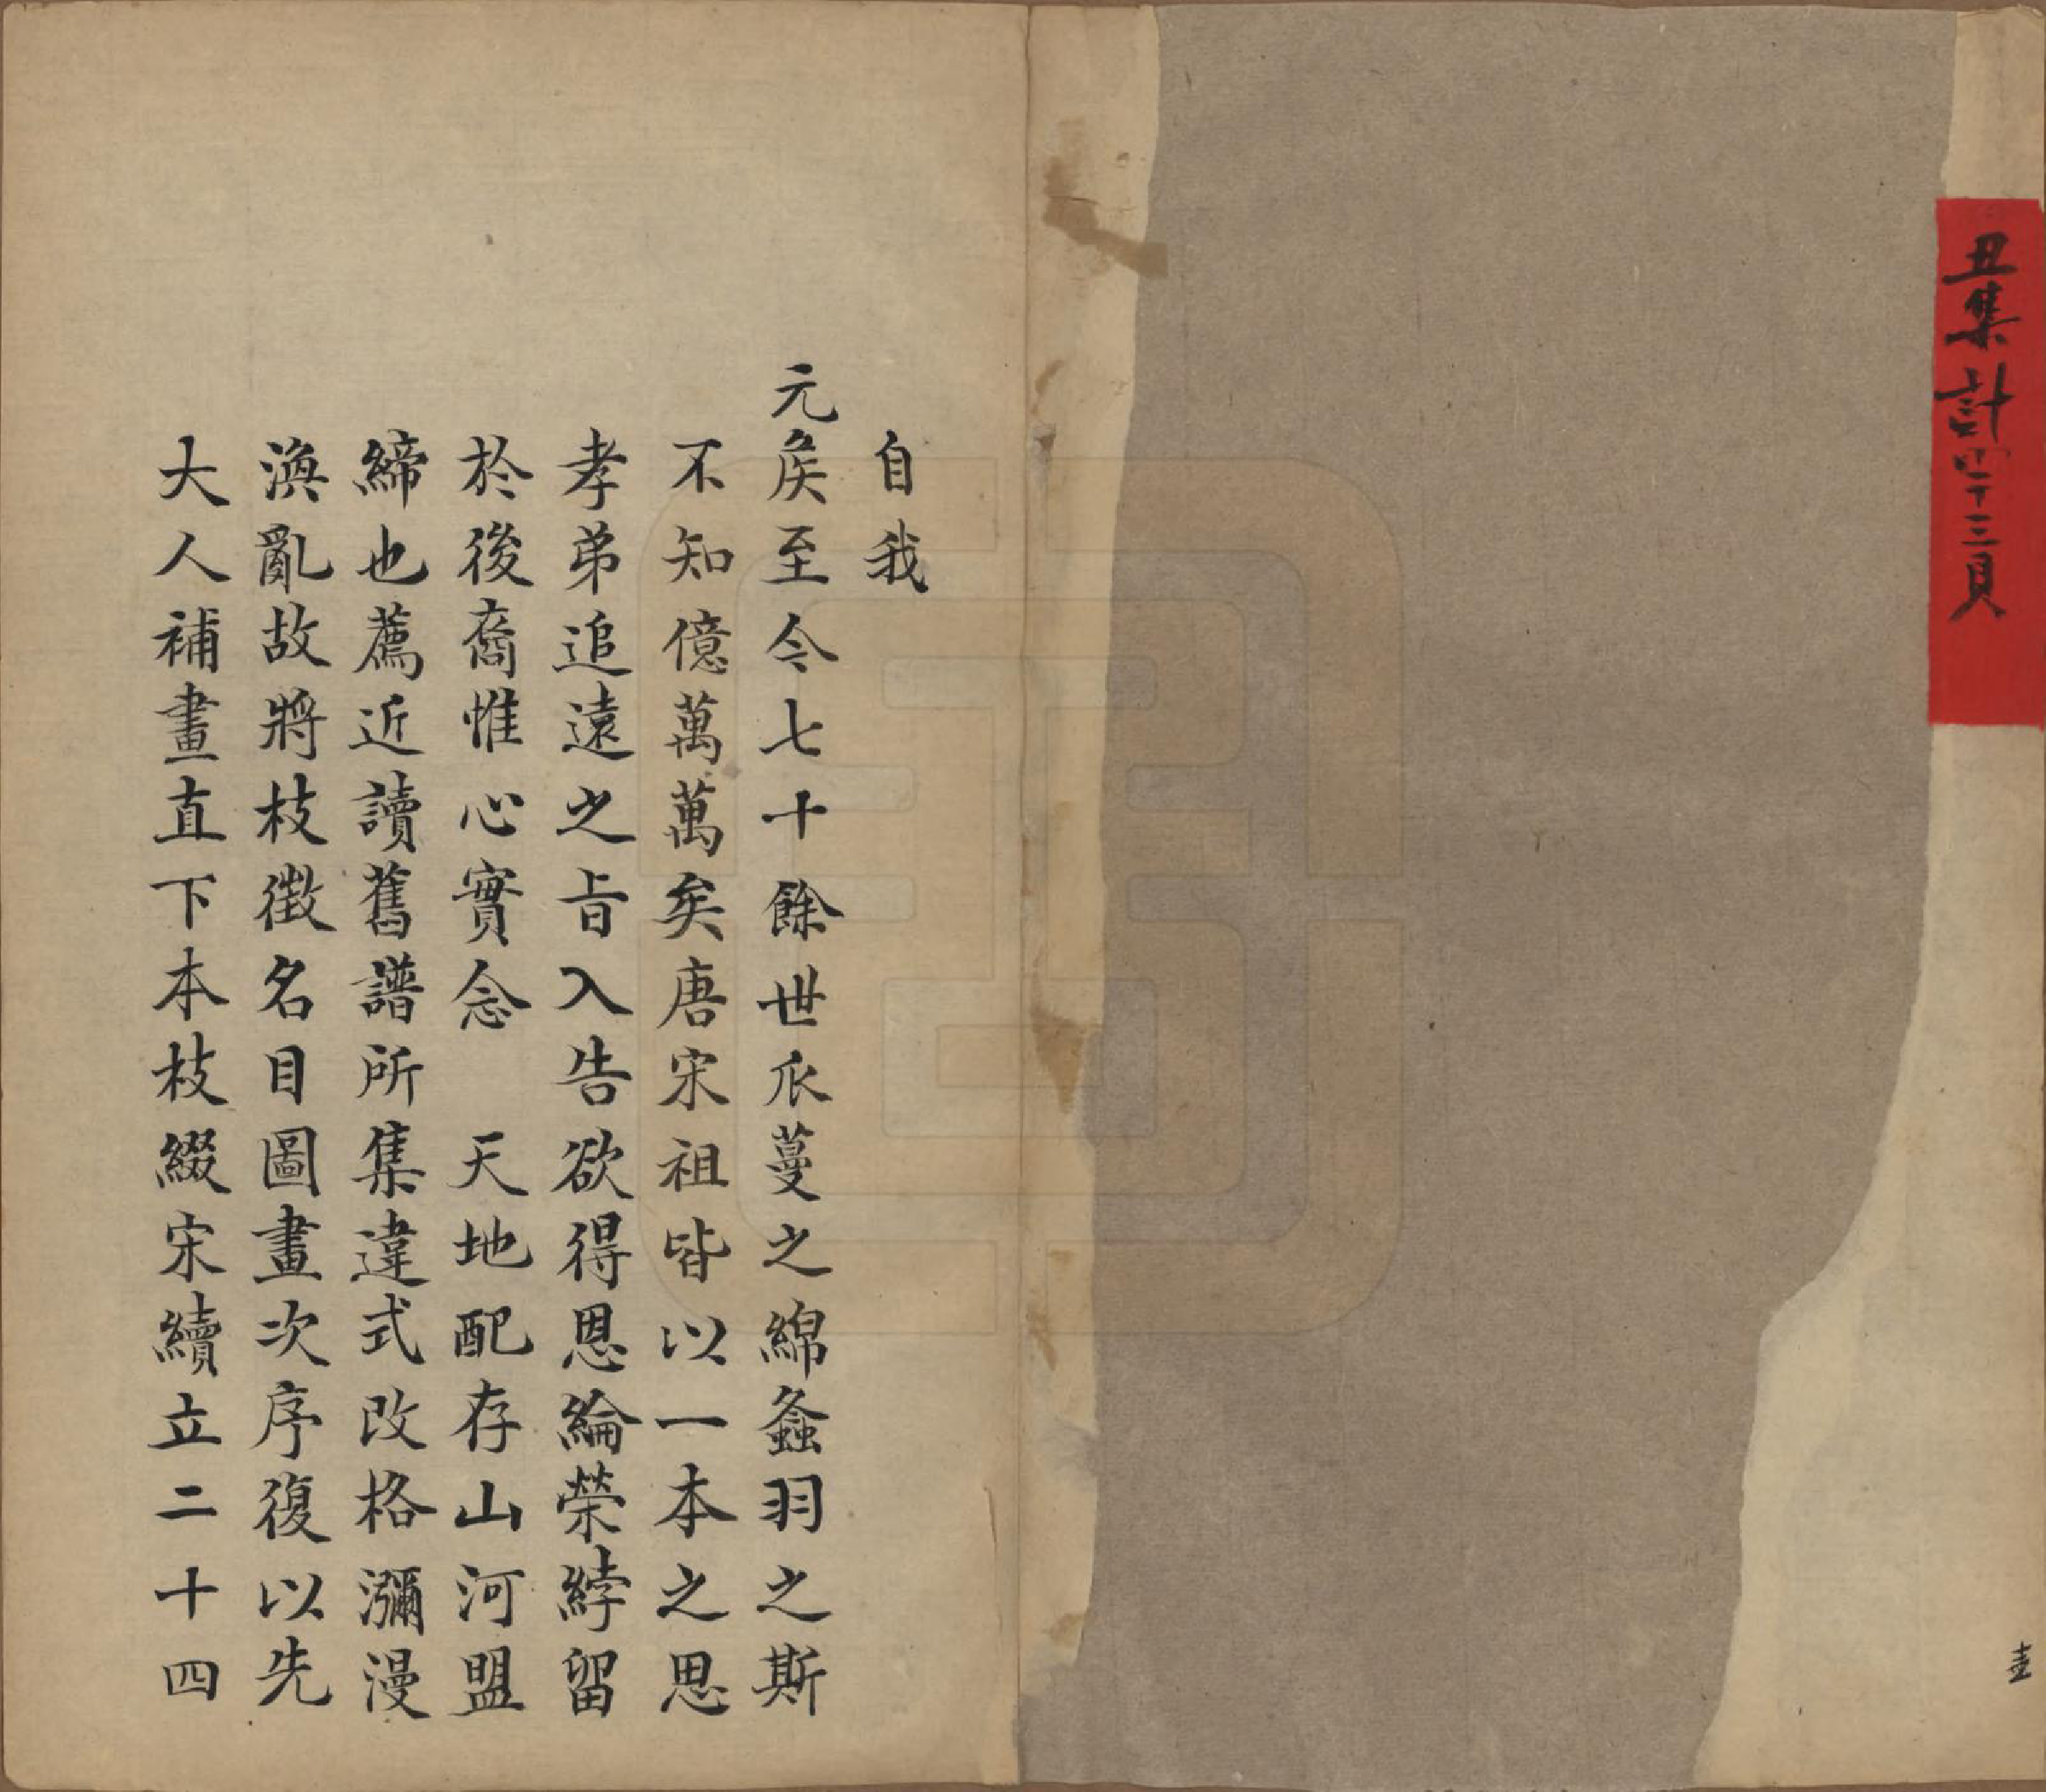 丑集計四十三頁
壴
自我
元矦至今七十餘世瓜蔓之綿螽羽之斯
不知億萬萬矣唐宋祖皆以一本之思
孝弟追遠之旨入告欲得恩綸榮綍留
於後裔惟心實念 天地配存山河盟
締也薦近讀舊譜所集違式改格瀰漫
渙亂故將枝徴名目圖畫次序復以先
大人補畫直下本枝綴宋續立二十四